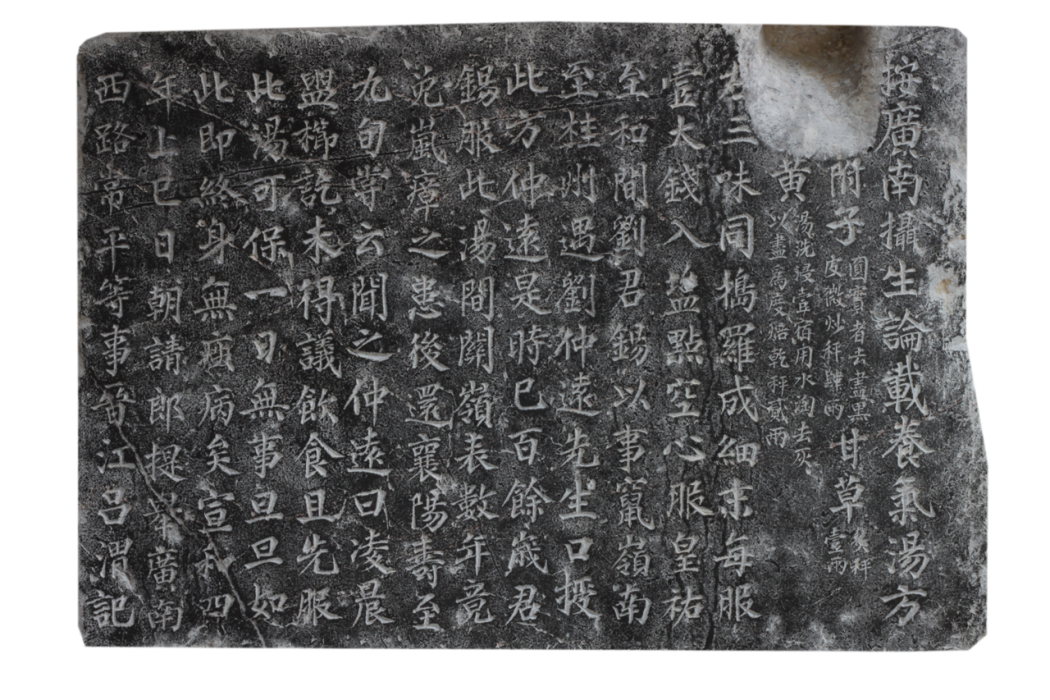 按廣南攝生論載養氣湯方
附子圓實者去盡黑皮微炒秤肆兩甘草炙秤壹兩
黄湯洗浸壹宿用水淘去灰以盡為度焙乾秤貳兩
右三味同搗羅成細末每服
壹大錢入盐點空心服皇祐
至和間劉君錫以事竄嶺南
至桂州遇劉仲遠先生口授
此方仲遠是時已百餘歲君
錫服此湯間關嶺表數年竟
免嵐瘴之患後還襄陽壽至
九旬嘗云聞之仲遠曰凌晨
盥櫛訖未得議飲食且先服
此湯可保一日無事旦旦如
此即終身無疴病矣宣和四
年上巳日朝請郎提舉廣南
西路常平等事晉江吕渭記